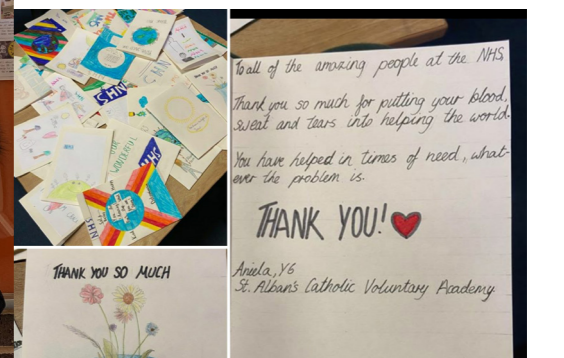 NHS
NHS
WONDERFUL
NHS
THANK YOU SO MUCH
To all of the amazing people at the NHS,
Thank you so much for putting your blood,
sweat and tears into helping the world.
You have helped in times of need, what-
ever the problem is.
THANK YOU!
Aniela, Y6
St. Alban's Catholic Voluntary Academy